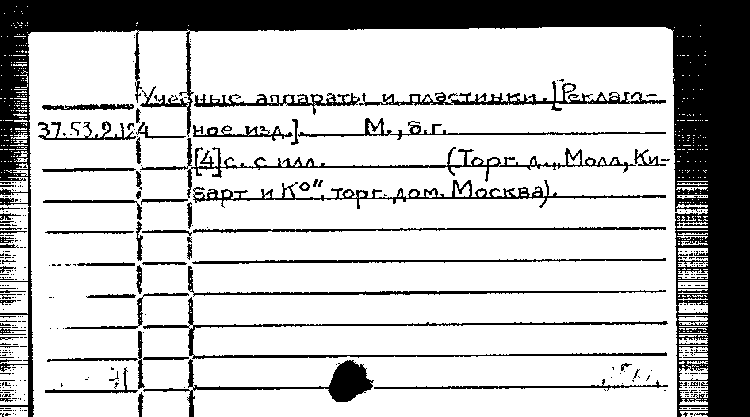 Учебные аппараты и пластинки. [Реклам-
37.53.9.124 ное изд.]. М., б.г.
[4] с. с илл. (Торг. д. „Молл, Ки-
барт и К°", торг. дом. Москва).